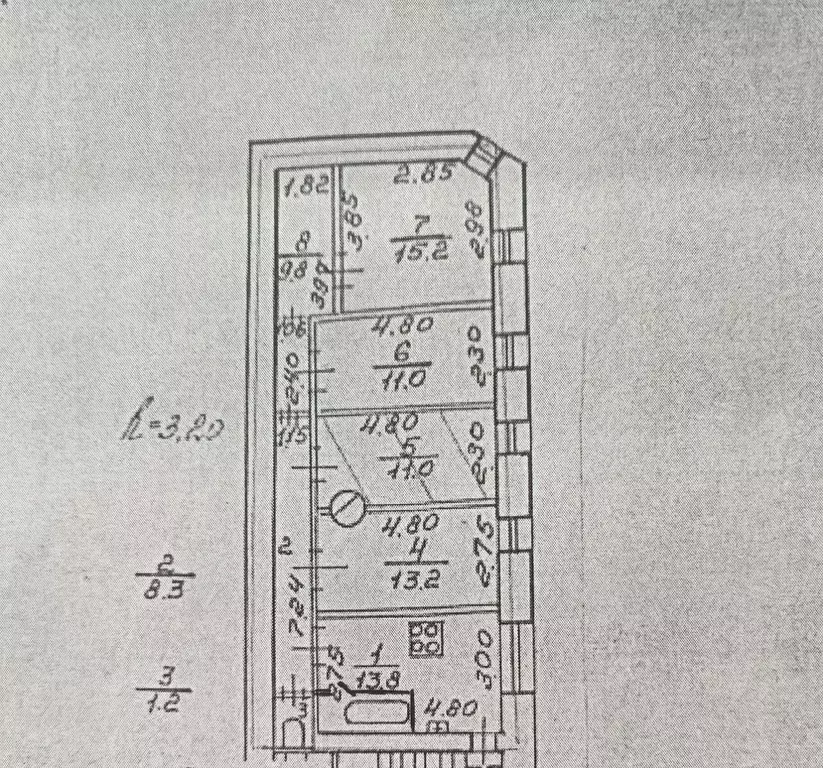 1.82
2.85
3.85
7
15.2
2.98
8
9.8
3.97
1.06
4.80
6
11.0
2.30
2.40
h=3.20
1.15
4.80
5
11.0
2.30
4.80
4
13.2
2.75
2
2
8.3
7.24
1
13.8
2.75
3.00
3
1.2
3
4.80